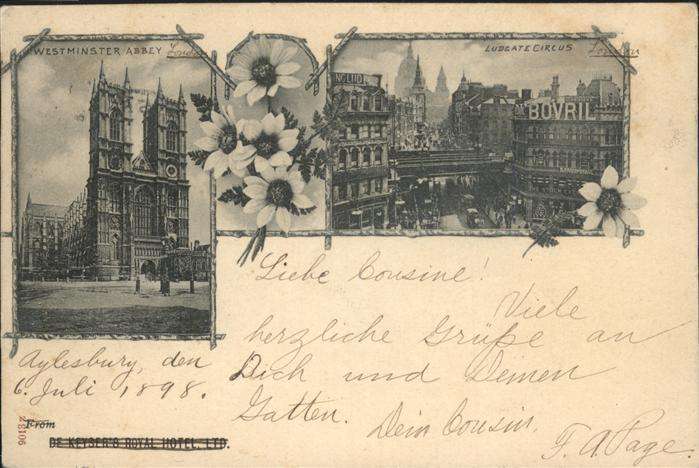 WESTMINSTER ABBEY London
LUDGATE CIRCUS London
BOVRIL
Liebe Cousine!
Viele
herzliche Grüße an
Dich und Deinen
Gatten. Dein Cousin.
F. A. Page.
Aylesbury, den
6. Juli 1898.
From
DE KEYSER'S ROYAL HOTEL, LTD.